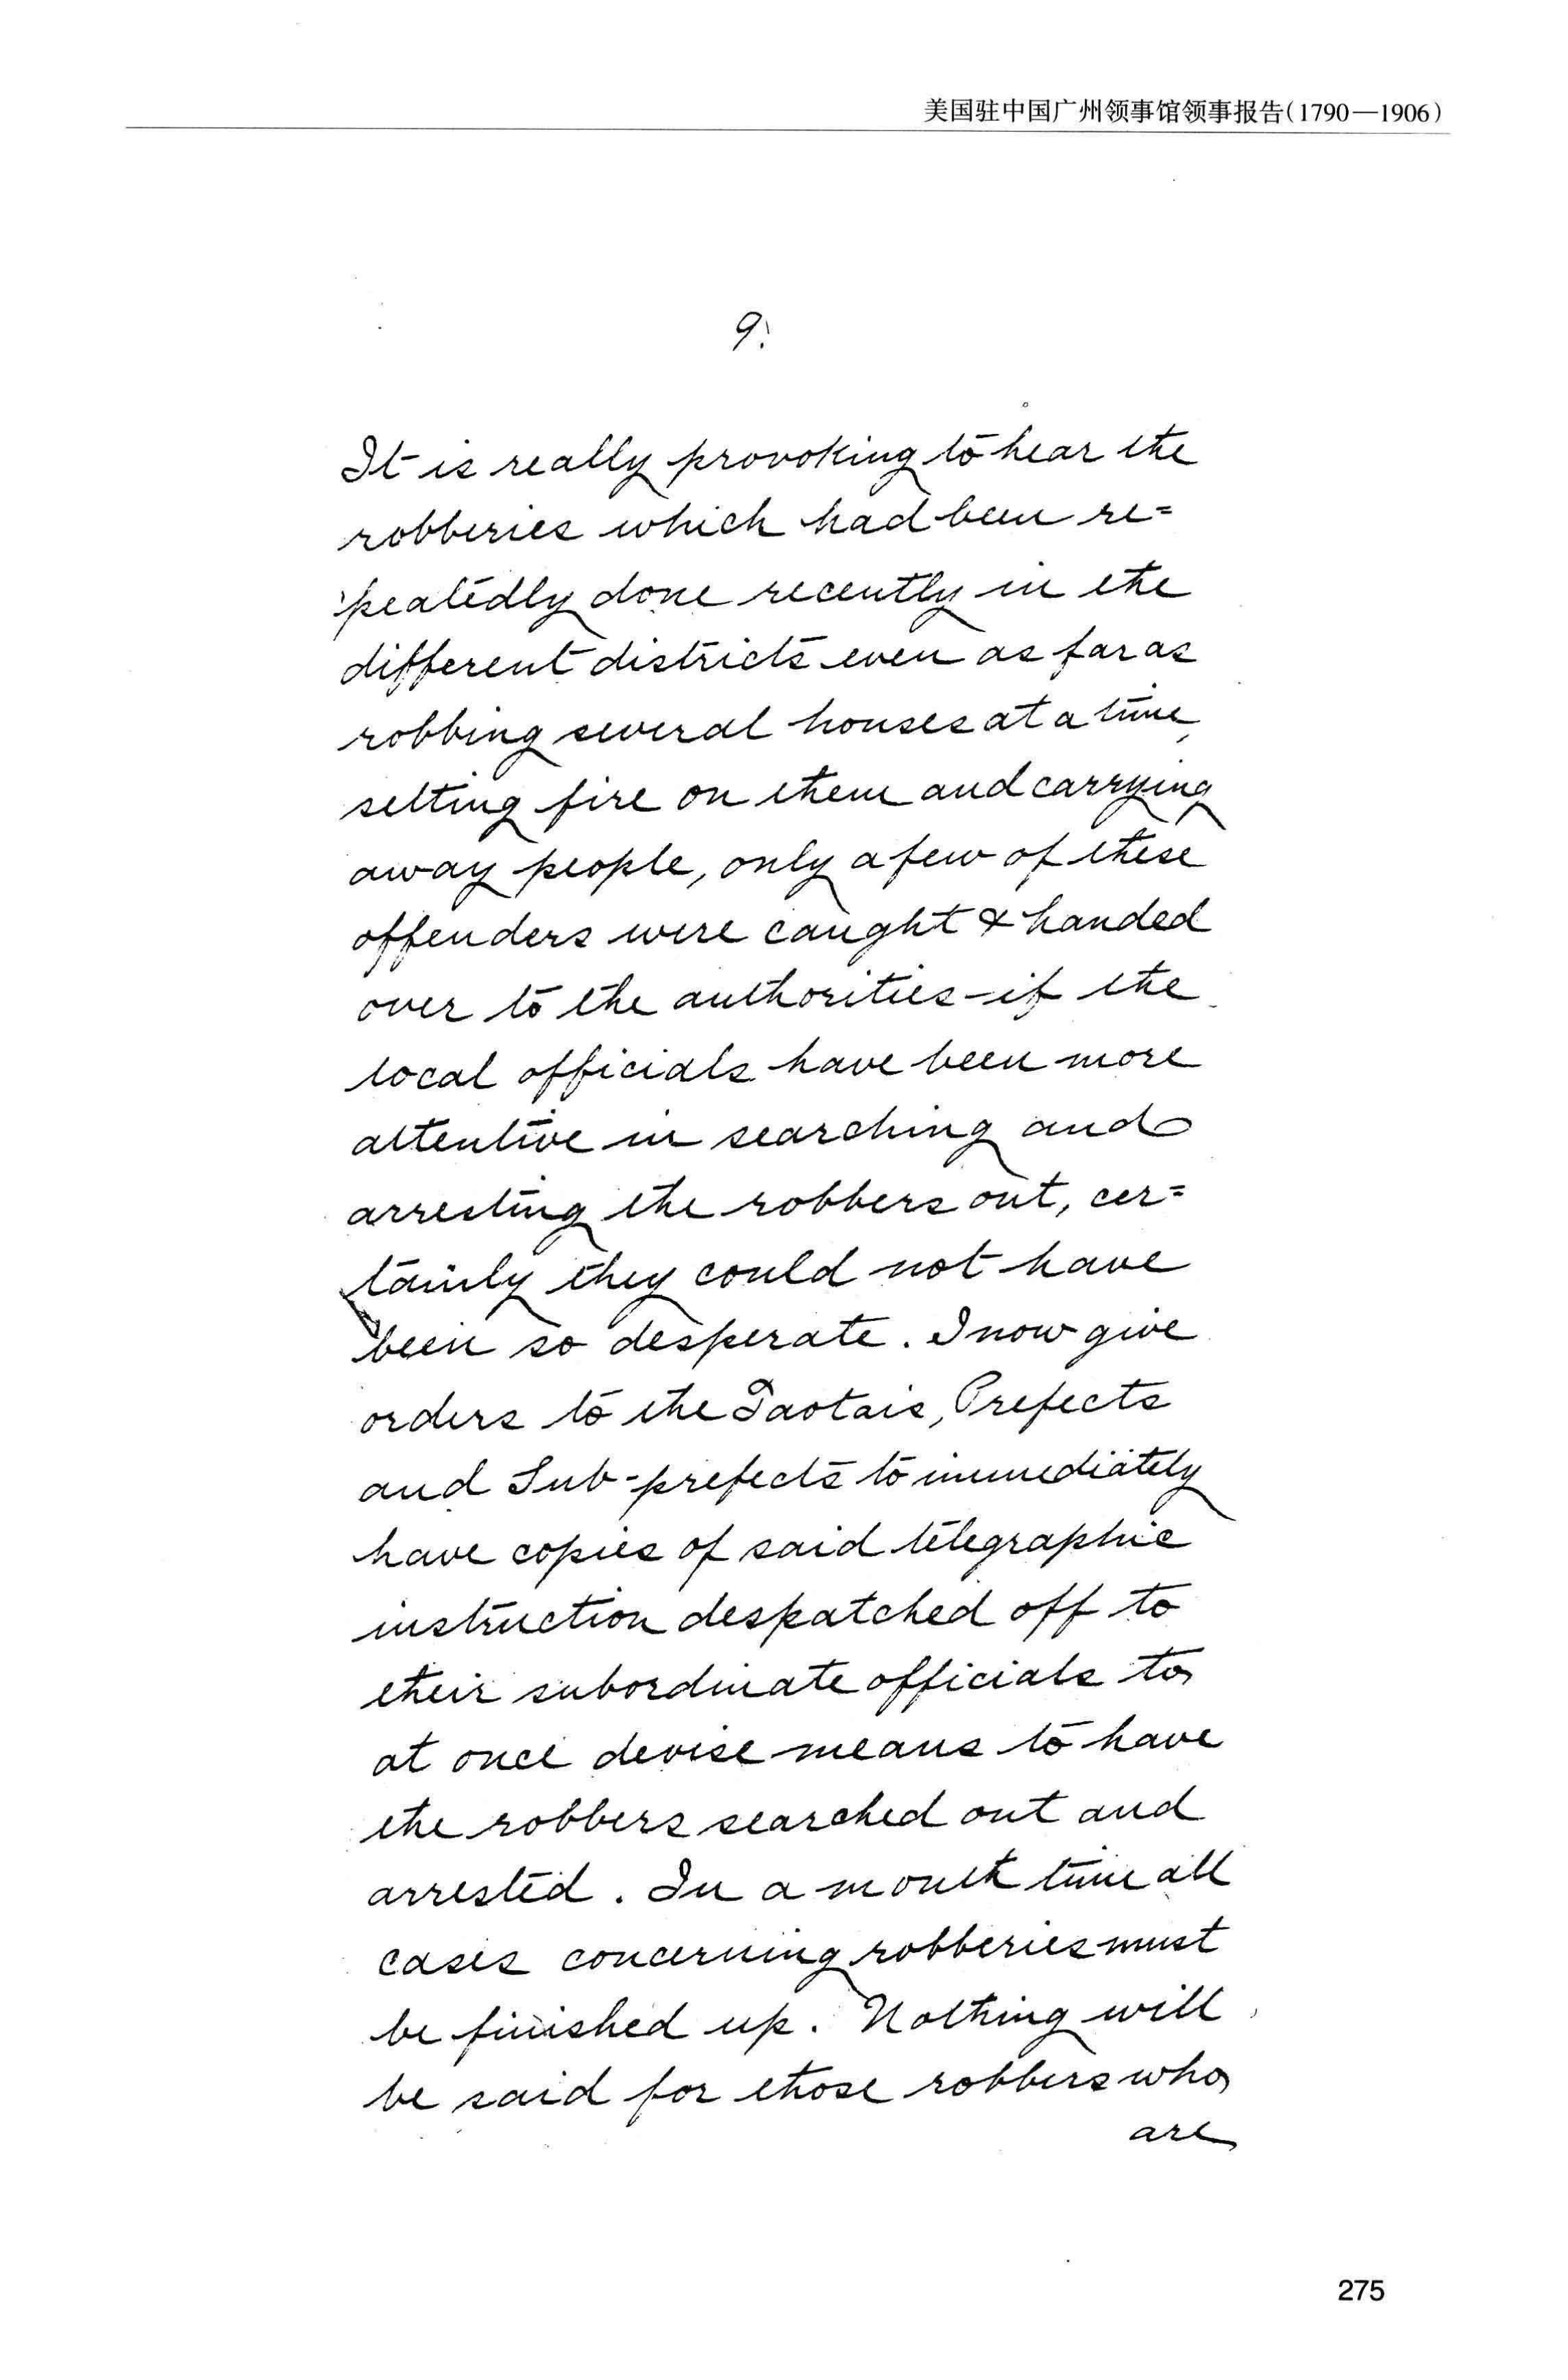 美国驻中国广州领事馆领事报告(1790—1906)
9.
It is really provoking to hear the
robberies which had been re=
peatedly done recently in the
different districts even as far as
robbing several houses at a time,
setting fire on them and carrying
away people, only a few of these
offenders were caught & handed
over to the authorities-if the
local officials have been more
attentive in searching and
arresting the robbers out, cer=
tainly they could not have
been so desperate. I now give
orders to the Taotais, Prefects
and Sub-prefects to immediately
have copies of said telegraphic
instruction despatched off to
their subordinate officials to
at once devise means to have
the robbers searched out and
arrested. In a month time all
cases concerning robberies must
be finished up. Nothing will
be said for those robbers who
are
275